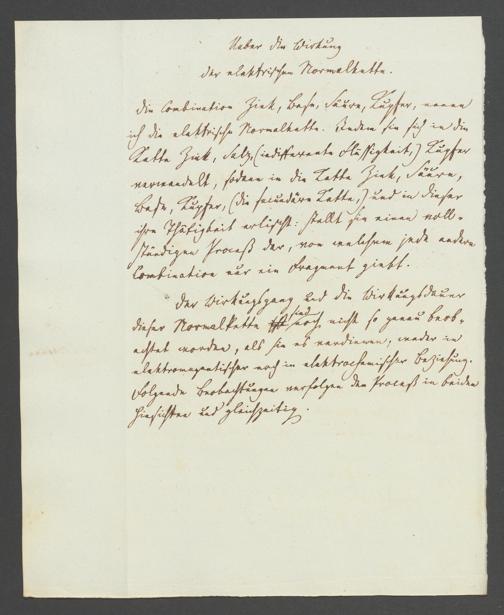 Ueber die Wirkung
der elektrischen Normalkette.
Die Combination Zink, Base, Säure, Kupfer, nenne
ich die elektrische Normalkette. Indem sie sich in die
Kette Zink, Salz, (indifferente Flüssigkeit,) Kupfer
verwandelt, sodann in die Kette Zink, Säure,
Base, Kupfer, (die secundäre Kette,) und in dieser
ihre Thätigkeit erlischt: stellt sie einen voll-
ständigen Proceß dar, von welchem jede andere
Combination nur ein Fragment giebt.
Der Wirkungsgang und die Wirkungsdauer
dieser Normalkette sind noch nicht so genau beob-
achtet worden, als sie es verdienen, weder in
elektromagnetischer noch in elektrochemischer Beziehung.
Folgende Beobachtungen verfolgen den Proceß in beiden
Hinsichten und gleichzeitig.